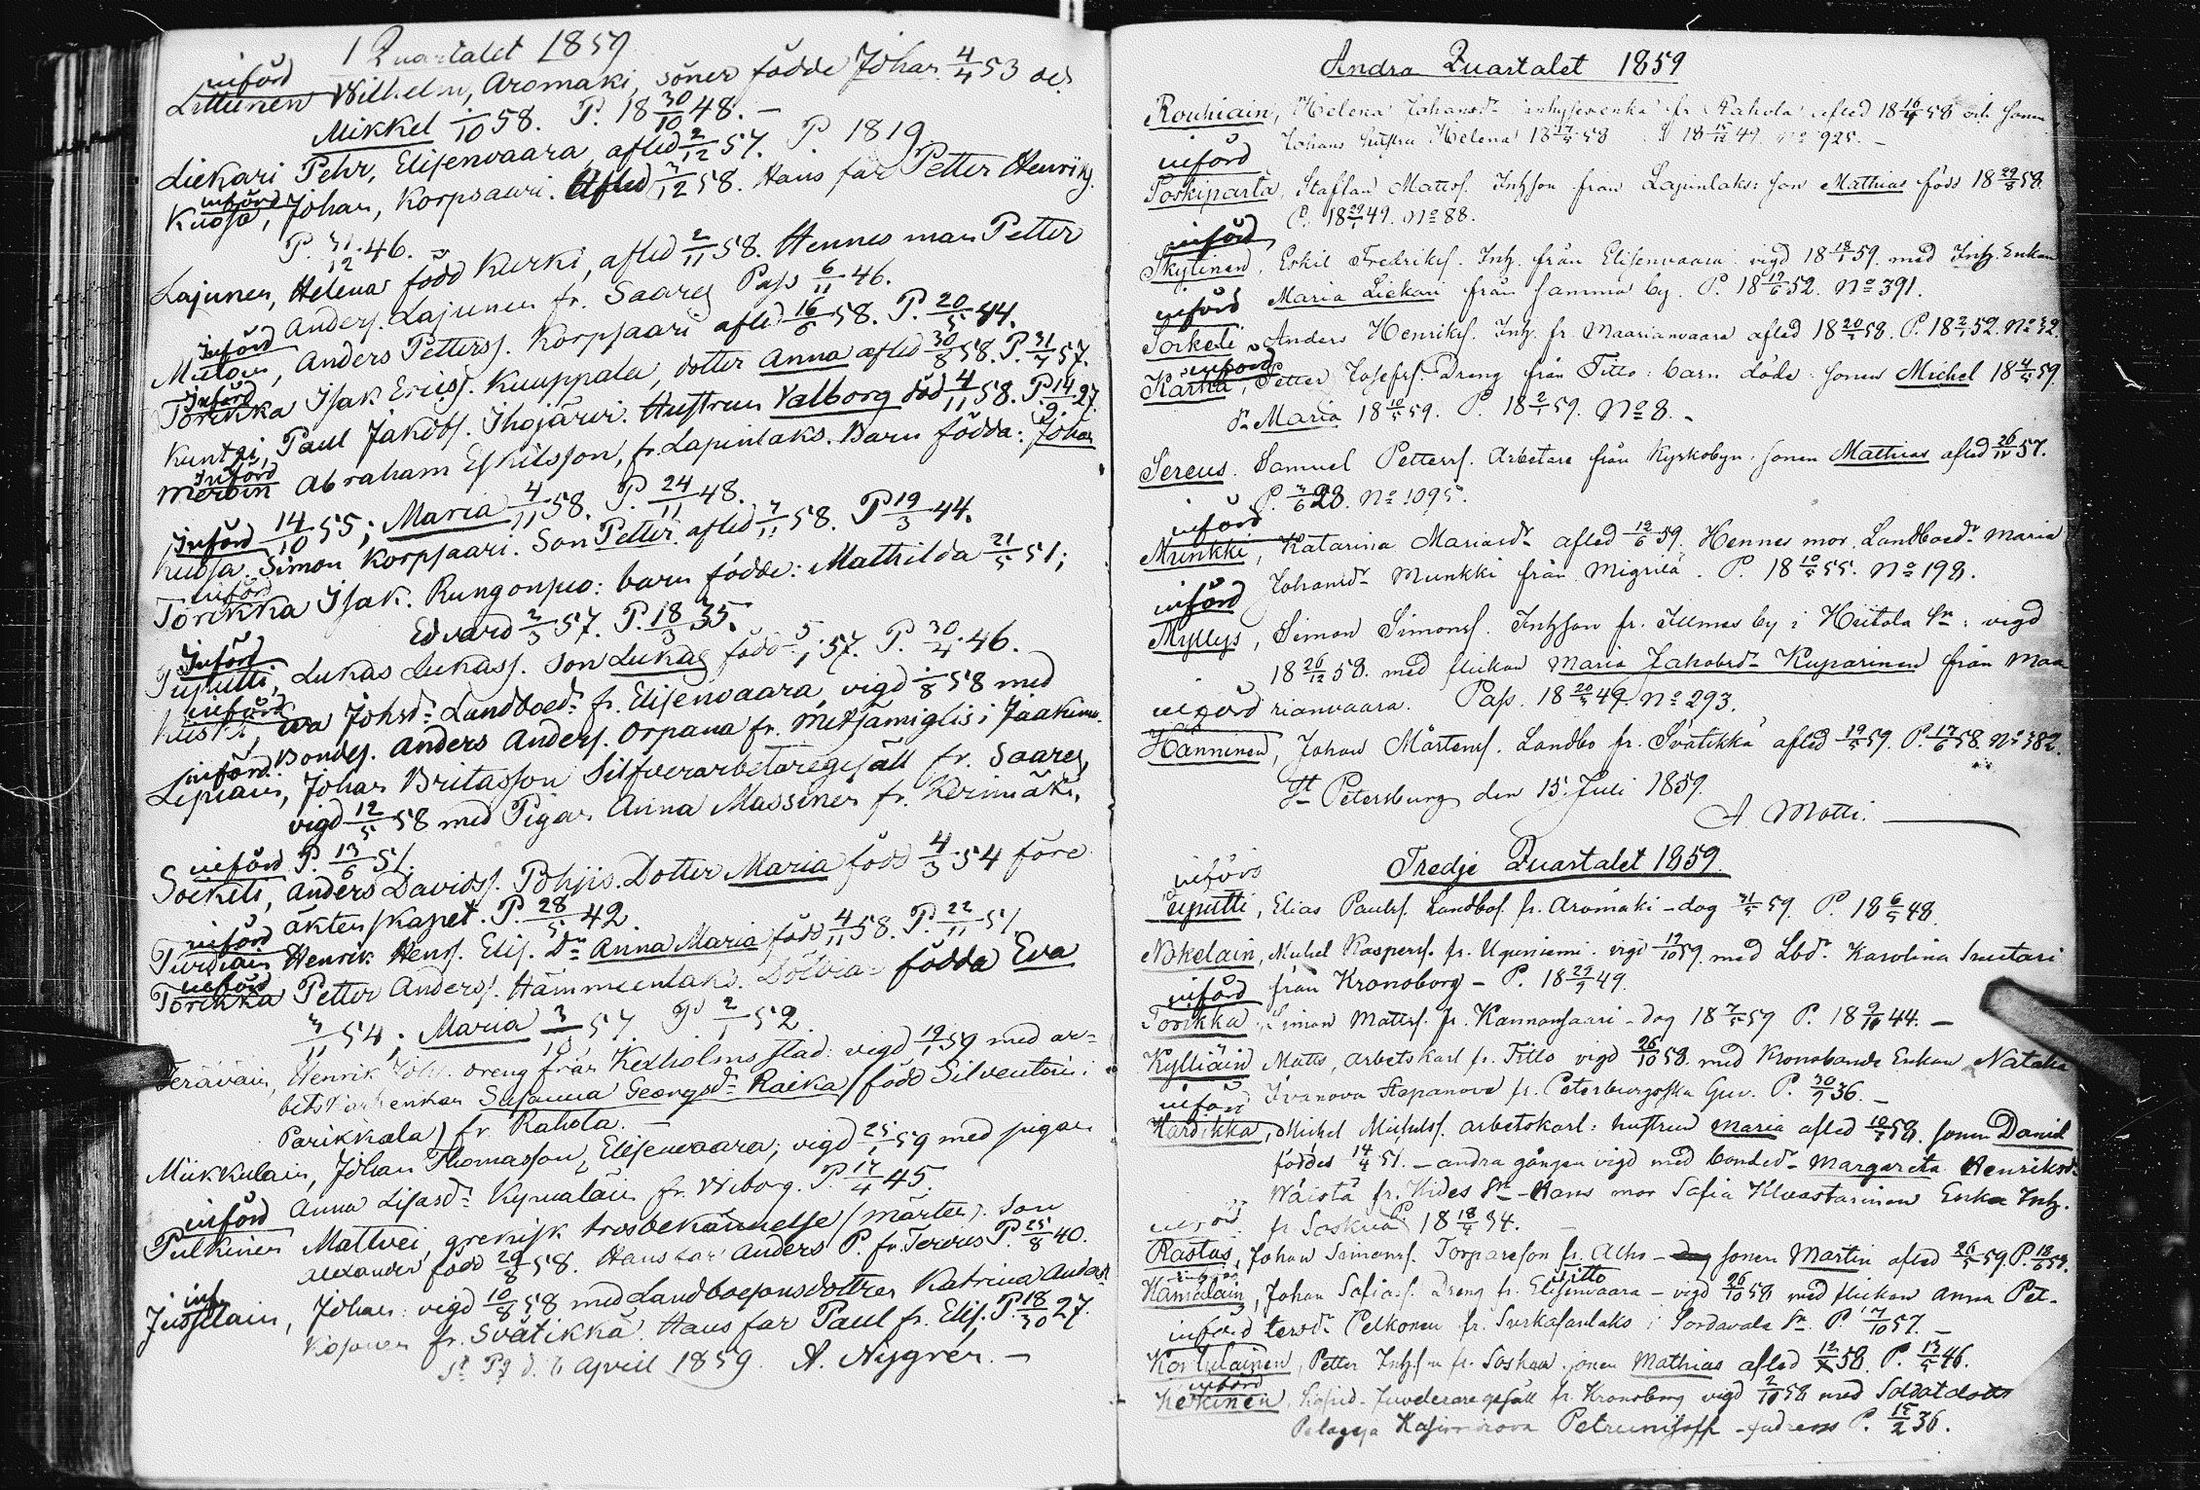 1 Quartalet 1859
införd
Littunen Wilhelm, Aromäki, söner födde Johan 4/4 53 och
Mikkel /10 58. P. 18 30/10 48. –
Liekari Pehr, Elisenvaara, afled 2/12 57. P. 1819
införd
Kuosa, Johan, Korpsaari. Afled 3/12 58. Hans far Petter Henriks.
P. 31/12 46. –
Lajunen, Helena född Kurki, afled 2/11 58. Hennes man Petter
Anders. Lajunen fr. Saares Pass 6/11 46.
Införd
Anders Petterss. Korpsaari afled 16/6 58. P. 20/5 44.
Införd
Torikka Isak Erikss. Kuuppala, dotter Anna afled 30/8 58. P. 31/7 57.
Kuntzi, Paul Jakobs. Ihojärvi. Hustrun Valborg död 4/11 58. P. 14/9 27.
Införd
Meroin Abraham Eskilsson, fr. Lapinlaks. Barn födda: Johan
14/10 55; Maria 4/11 58. P. 24/11 48.
Införd
Kuosa Simon Korpsaari. Son Petter afled 7/11 58. P. 19/3 44.
införd
Torikka Isak. Rungonpuo: barn födde: Mathilda 21/5 51;
Edvard 2/3 57. P. 18/3 35.
Införd
Pujutti, Lukas Lukass. Son Lukas född 5/1 57. P. 30/4 46.
införd
Johsdr Landboedr fr. Elisenvaara, vigd /8 58 med
Bondes. Anders Anders. Orpana fr. Metsämiglis i Jaakima.
införd
Lipiäin, Johan Britasson Silfverarbetaregesäll fr. Saares,
vigd 12/5 58 med Pigan Anna Massinen fr. Kerimäki,
P. 13/6 51.
införd
Sockeli, Anders Davidss. Pohjis. Dotter Maria född 4/3 54 före
äktenskapet. P. 28/5 42.
införd
Henrik Hens. Elis. Dr Anna Maria född 4/11 58. P. 22/11 51.
införd
Torikka Petter Anderss. Hämmeenlaks. födda Eva
3/11 54. Maria 3/10 57 P 2/1 52.
Teräväin, Henrik Johs. dreng från Kexholms stad: vigd 19/1 59 med ar=
betskarlsenkan Susanna Georgsdr Raika (född Silventoin i
Parikkala) fr Rahola. –
Miikkulain, Johan Thomasson, Elisenvaara; vigd 25/1 59 med pigan
Anna Lisasdr Kymäläin fr. Wiborg. P. 17/4 45.
införd
Pulkinen Mattvei, grekisk trosbekännelse (Märten). Son
Alexander född 29/8 58. Hans far Anders P. fr. Tervus P. 25/8 40.
inf.
Jussilain, Johan: vigd 10/8 58 med Landboesonsdottren Katrina Anders
Kosonen fr. Svätikkä. Hans far Paul fr. Elis. P. 18/30 27.
St Pg d. 6 April 1859. A. Nygrén. –
Andra Quartalet 1859
Rouhiain, Helena Johansdr fr. Rahola afled 18 16/4 58 och sonen
Johans hustru Helena 18 17/5 58 P 18 15/12 47 No 925. –
införd
Poskiparta, Staffan Mattss. Inhson från Lapinlaks: son Mathias född 18 29/8 58.
P. 18 29/1 49. No 88.
införd
Skylinen, Eskil Fredrikss. Inh. från Elisenvaara vigd 18 18/1 59. med Inh. Enkan
Maria Liekari från samma by. P. 18 19/6 52. No 391.
införd
Sorkeli, Anders Henrikss. Inh. fr. Maarianvaara afled 18 20/5 58. P. 18 2/1 52. No 32.
införd
Karha, Petter Josefss. Dreng från Titto: barn döde: sonen Michel 18 4/5 59.
dr Maria 18 10/5 59. P. 18 2/1 59. No 8. –
Sereus. Samuel Petterss. Arbetare från Kyrkobyn. sonen Mathias afled 26/11 57.
P. 3/6 28. No 1095.
införd
Munkki, Katarina Mariasdr afled 12/6 59. Hennes mor. Landboedr Maria
Johansdr Munkki från Migrilä. P. 18 10/5 55. No 198.
införd
Myllys, Simon Simonss. Inhson fr. Ilmes by i Hiitola Sn: vigd
18 26/12 58. med flickan Maria Jakobsdr Kuparinen från Maa
rianvaara. Pass. 18 20/5 49. No 293.
införd
Hänninen, Johan Mårtenss. Landbo fr. Svätikkä afled 19/5 59. P. 17/6 58. No 382.
St Petersburg den 15 Juli 1859.
A. Motti.
Tredje Quartalet 1859.
införd
Pujutti, Elias Paulss. Landbos. fr. Aromäki – dog 31/5 59. P. 18 6/5 48.
Nokelain, Michel Kasperss. fr. Uguniemi. vigd 19/10 59. med Lbdr. Karolina Suutari
från Kronoborg – P. 18 29/9 49.
införd
Torikka, Simon Mattss. fr. Kannansaari – dog 18 7/5 59 P. 18 9/10 44. –
Kylliäin Matts, arbetskarl fr. Titto vigd 26/10 58. med Kronobonde Enkan Natalia
Ivanova Stepanova fr. Petersburgska Guv. P. 30/7 36. –
införd
Kardikka, Michel Michelss. arbetskarl: hustrun Maria afled 10/7 58. sonen Daniel
föddes 14/4 51. – andra gången vigd med bondedr Margareta Henriksdr
Wäistä fr. Kides Sn – Hans mor Safia Kluastarinen Enka Inh.
fr. Soskua P 18 18/4 34. –
införd
Rastas, Johan Simonss. Torpareson fr. Alho – dog sonen Martin afled 26/5 59. P. 18/6 59.
Hämäläin, Johan Safias. Dreng fr. Elisenvaara Titto – vigd 26/10 58 med flickan Anna Pet-
tersdr Pelkonen fr. i Sordavala Sn. P 7/10 57. –
införd
Korhulainen, Petter Inhsn fr. Soskua. sonen Mathias afled 12/ 58. P. 13/5 46.
införd
Keskinen, Juvelerare gesäll fr. Kronoborg vigd 2/10 58 med Soldatdottr
Pelageja P. 15/2 36.